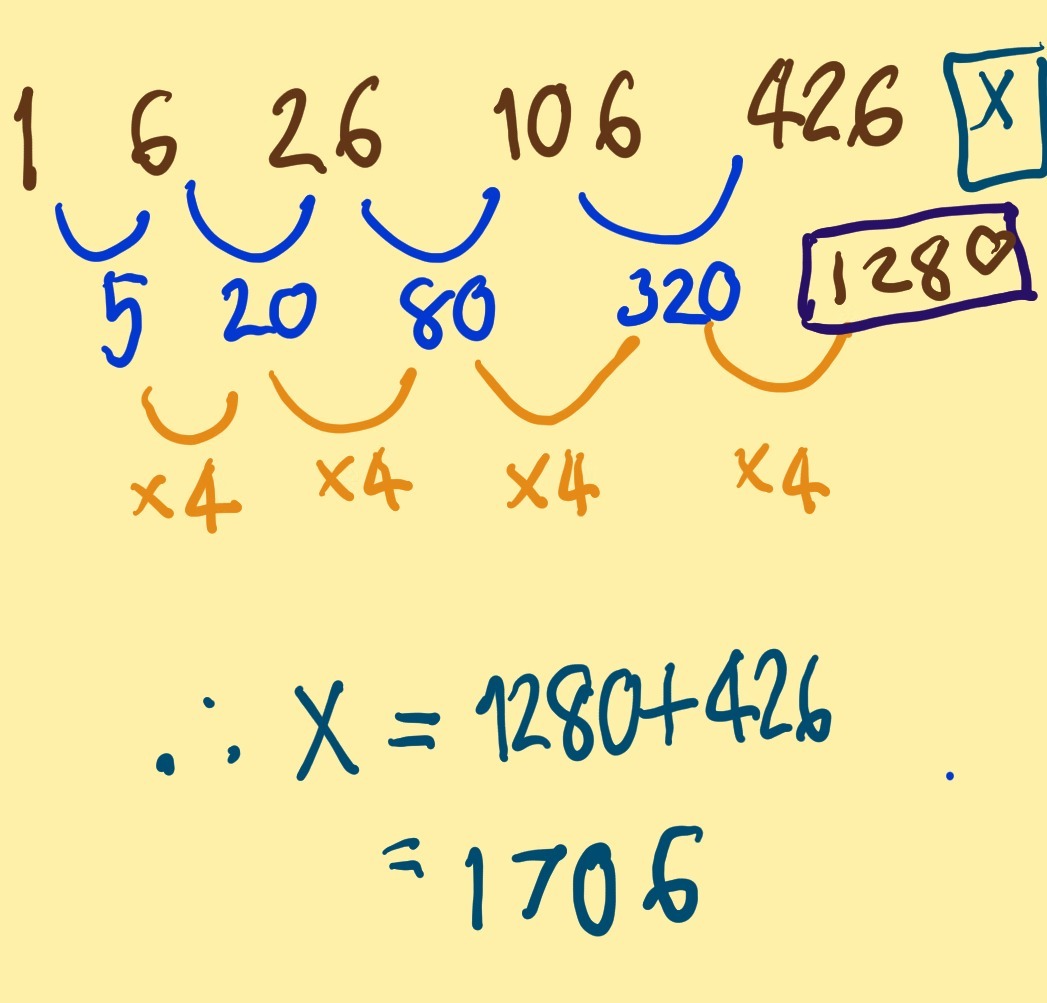 1 6 26 106 426 X
5 20 80 320 1280
×4 ×4 ×4 ×4
∴ X = 1280+426
= 1706